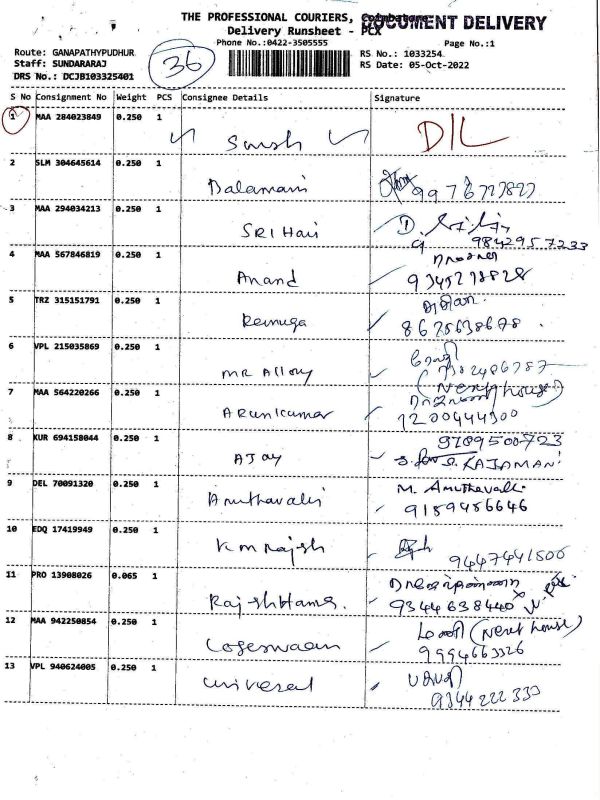 THE PROFESSIONAL COURIERS, Coimbatore
DOCUMENT DELIVERY
Delivery Runsheet - PCX
Phone No.:0422-3505555
Page No.:1
Route: GANAPATHYPUDHUR
36
RS No.: 1033254
Staff: SUNDARARAJ
RS Date: 05-Oct-2022
DRS No.: DCJB103325401
S No Consignment No Weight PCS Consignee Details Signature
1 MAA 284023849 0.250 1
D/L
2 SLM 304645614 0.250 1
Balamani
3 MAA 294034213 0.250 1
SRI Hari D.
9842957233
4 MAA 567846819 0.250 1
Anand
5 TRZ 315151791 0.250 1
Renuga
8675638678
6 VPL 215035869 0.250 1
MR Allory
(Next house)
7 MAA 564220266 0.250 1
Arunkumar
1200444300
8 KUR 694158044 0.250 1 9789500723
AJay RAJAMANI
9 DEL 70091320 0.250 1 M. Amuthavalli
Amuthavalli 9159456646
10 EDQ 17419949 0.250 1
K M Rajesh 9447441500
11 PRO 13908026 0.065 1
9344638440
12 MAA 942250854 0.250 1 மணி (Next house)
Logeswaran 9994663326
13 VPL 940624005 0.250 1
universal 9344222333